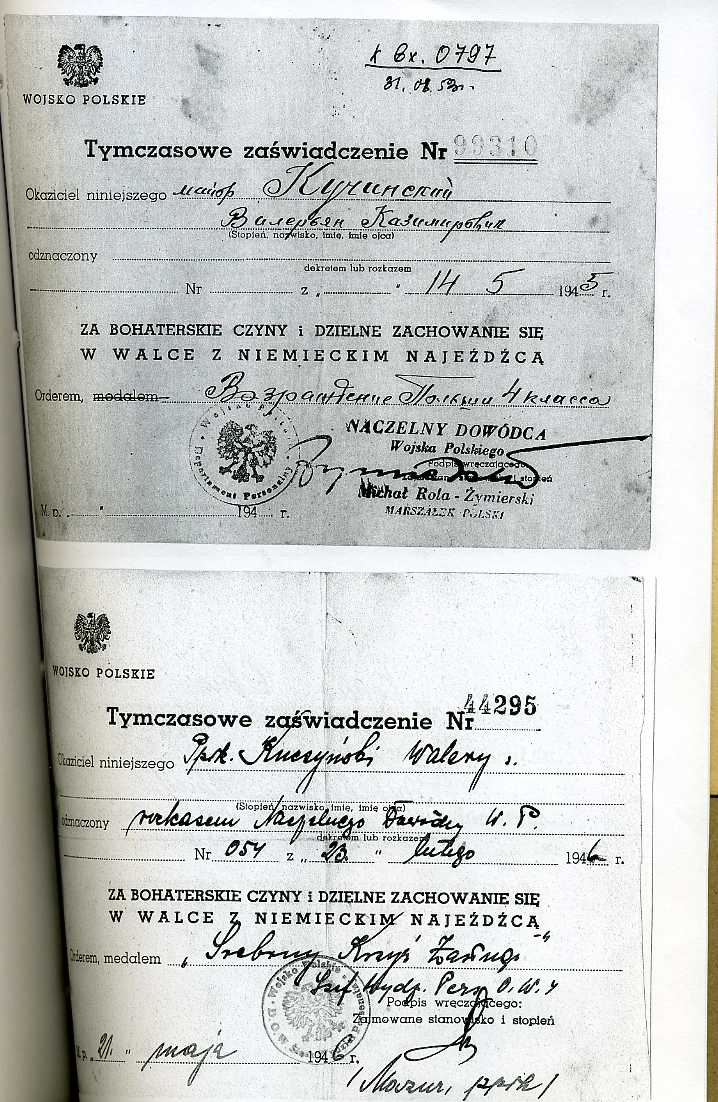 к вх. 0797
31.08.53г.
WOJSKO POLSKIE
Tymczasowe zaświadczenie Nr 99310
Okaziciel niniejszego майор Кучинский
Валерьян Казимирович
(Stopień, nazwisko, imię, imię ojca)
odznaczony
dekretem lub rozkazem
Nr z „ " 14 5 1945 r.
ZA BOHATERSKIE CZYNY i DZIELNE ZACHOWANIE SIĘ
W WALCE Z NIEMIECKIM NAJEŹDŹCĄ
Orderem, medalem Возраждение Польши 4 класса
NACZELNY DOWÓDCA
Wojska Polskiego
Podpis wręczającego
stopień
Michał Rola-Żymierski
MARSZAŁEK POLSKI
Wojsko Polskie
Departament Personalny
M. p. „ " 194 r.
WOJSKO POLSKIE
Tymczasowe zaświadczenie Nr 44295
Okaziciel niniejszego Ppłk. Kuczyński Walery
(Stopień, nazwisko, imię, imię ojca)
odznaczony rozkazem Naczelnego Dowódcy W. P.
dekretem lub rozkazem
Nr 054 z „ 23 " lutego 1946 r.
ZA BOHATERSKIE CZYNY i DZIELNE ZACHOWANIE SIĘ
W WALCE Z NIEMIECKIM NAJEŹDŹCĄ
Orderem, medalem „Srebrny Krzyż Zasługi"
Szef Wydz. Pers. O. W.
Podpis wręczającego:
Zajmowane stanowisko i stopień
Wojsko Polskie
M. p. „ 21 " maja 1946 r.
/Mazur, ppłk/